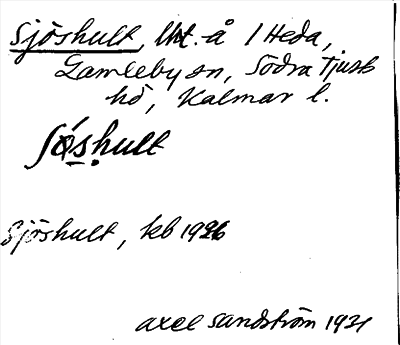 Sjöshult, lht.-å 1 Heda,
Gamleby sn, Södra Tjusts
hd, Kalmar l.
Sjöshult, kb 1926
axel sandström 1931